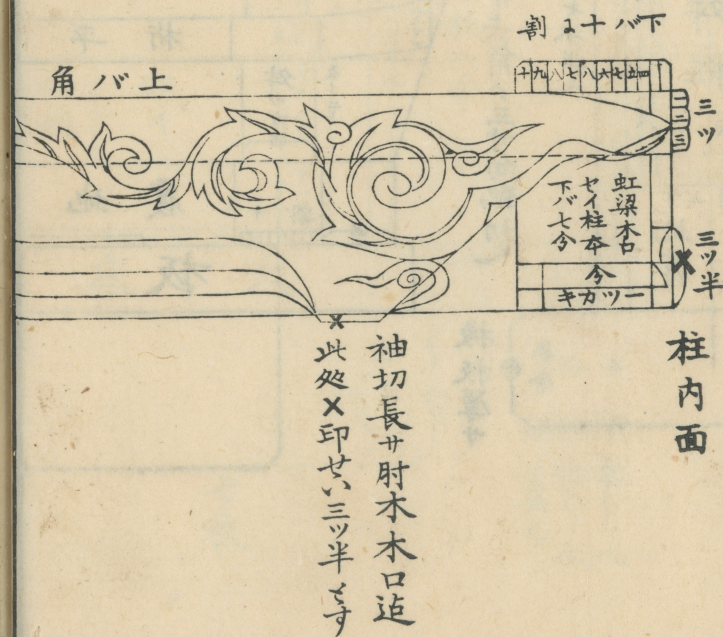 下バ十ヨ割
上バ角
十九八七八六七五四
一二三
三ツ
虹梁木口
セイ柱本
下バ七分
今
一ツカキ
三ツ半
×
柱内面
袖切長サ肘木木口迠
×
此処×印せい三ツ半とす